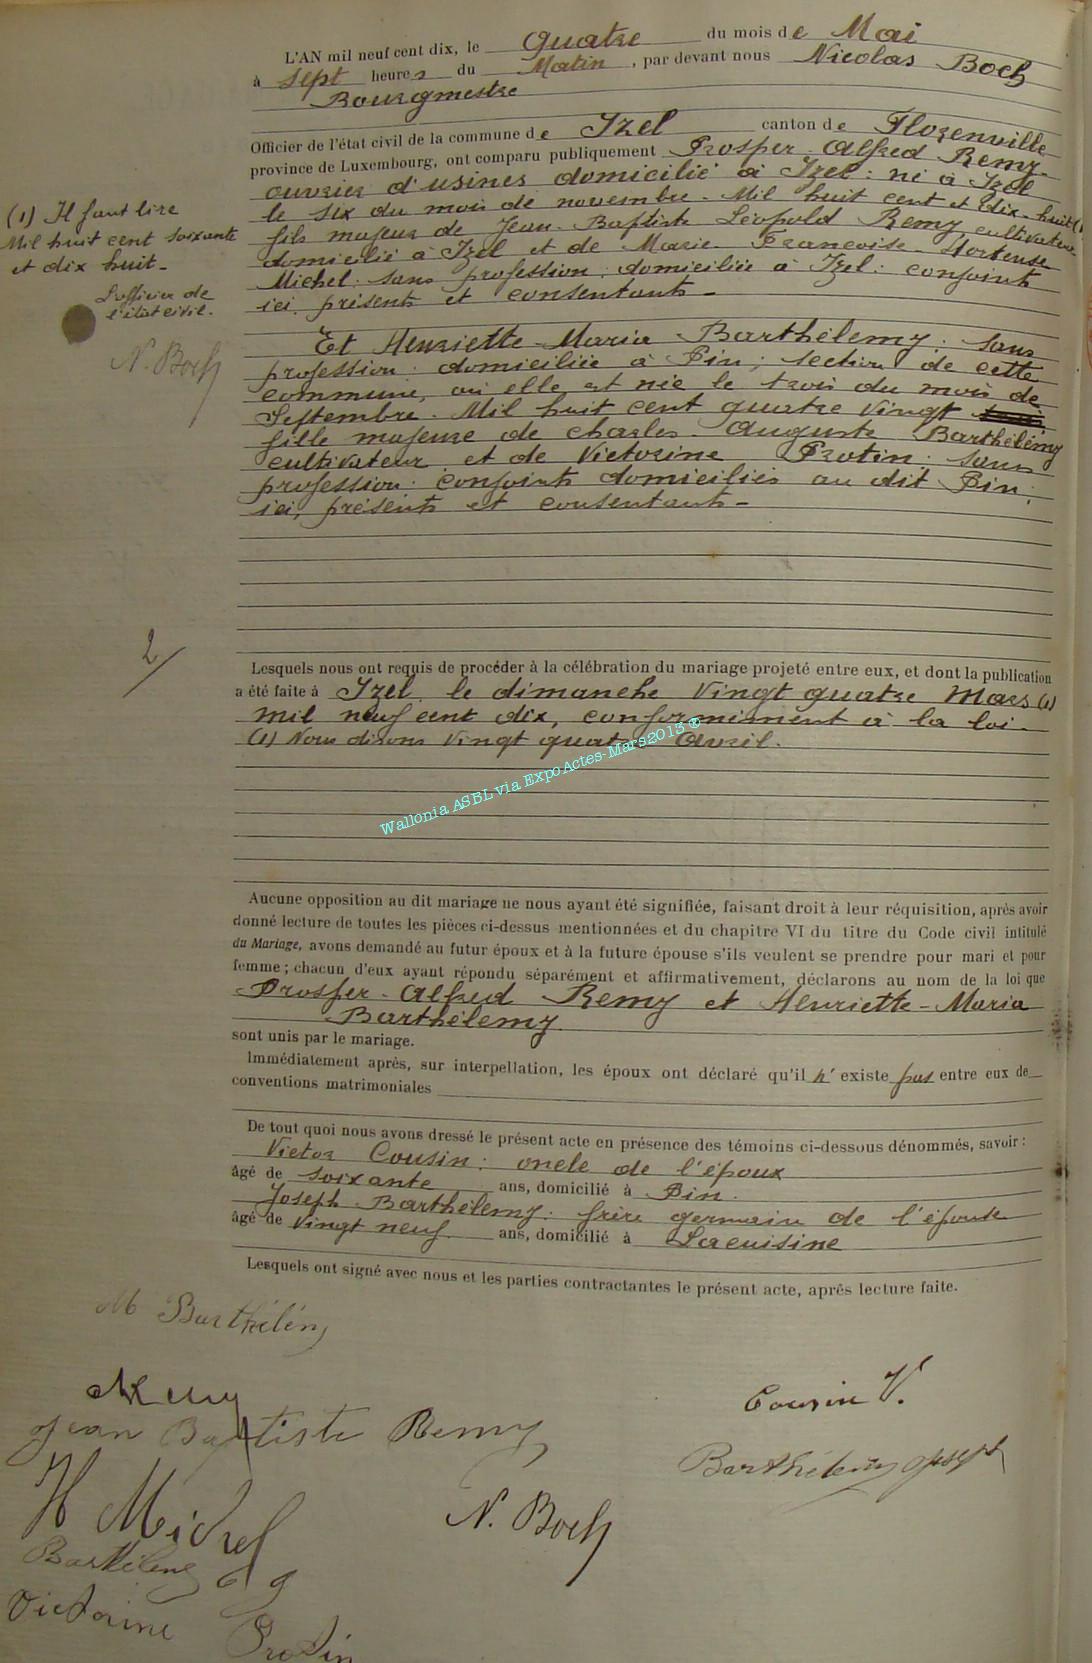 L'AN mil neuf cent dix, le quatre du mois de Mai
à sept heures du Matin, par devant nous Nicolas Boch
Bourgmestre
Officier de l'état civil de la commune de Izel canton de Florenville
province de Luxembourg, ont comparu publiquement Prosper-Alfred Remy.
ouvrier d'usines domicilié à Izel: né à Izel
le six du mois de novembre. Mil huit cent et dix-huit (1)
fils majeur de Jean-Baptiste Léopold Remy, cultivateur
domicilié à Izel et de Marie-Francoise-Hortense
Michel. sans profession, domiciliée à Izel: conjoints
ici présents et consentants-
(1) Il faut lire
Mil huit cent soixante
et dix huit-
L'officier de
l'état civil.
N. Boch
Et Henriette-Maria Barthélemy: sans
profession. domiciliée à Pin, section de cette
commune, où elle est née le trois du mois de
Septembre. Mil huit cent quatre vingt
fille majeure de Charles-Auguste Barthélemy
cultivateur et de Victorine Protin: sans
profession: conjoints domiciliés au dit Pin:
ici, présents et consentants-
2/
Lesquels nous ont requis de procéder à la célébration du mariage projeté entre eux, et dont la publication
a été faite à Izel, le dimanche vingt quatre Mars (1)
mil neuf cent dix, conformément à la loi.
(1) Nous disons vingt quatre Avril.
Wallonia ASBL via ExpoActes-Mars2013 ®
Aucune opposition au dit mariage ne nous ayant été signifiée, faisant droit à leur réquisition, après avoir
donné lecture de toutes les pièces ci-dessus mentionnées et du chapitre VI du titre du Code civil intitulé
du Mariage, avons demandé au futur époux et à la future épouse s'ils veulent se prendre pour mari et pour
femme; chacun d'eux ayant répondu séparément et affirmativement, déclarons au nom de la loi que
Prosper-Alfred Remy et Henriette-Maria
Barthélemy
sont unis par le mariage.
Immédiatement après, sur interpellation, les époux ont déclaré qu'il n' existe pas entre eux de
conventions matrimoniales
De tout quoi nous avons dressé le présent acte en présence des témoins ci-dessous dénommés, savoir:
Victor Cousin: oncle de l'époux
âgé de soixante ans, domicilié à Pin.
Joseph Barthélemy: frère germain de l'épouse
âgé de vingt neuf ans, domicilié à Lacuisine
Lesquels ont signé avec nous et les parties contractantes le présent acte, après lecture faite.
M Barthélémy
Remy
Jean Baptiste Remy
Cousin V.
Barthélemy Joseph
H Michel
N. Boch
Barthélemy
Victorine Protin